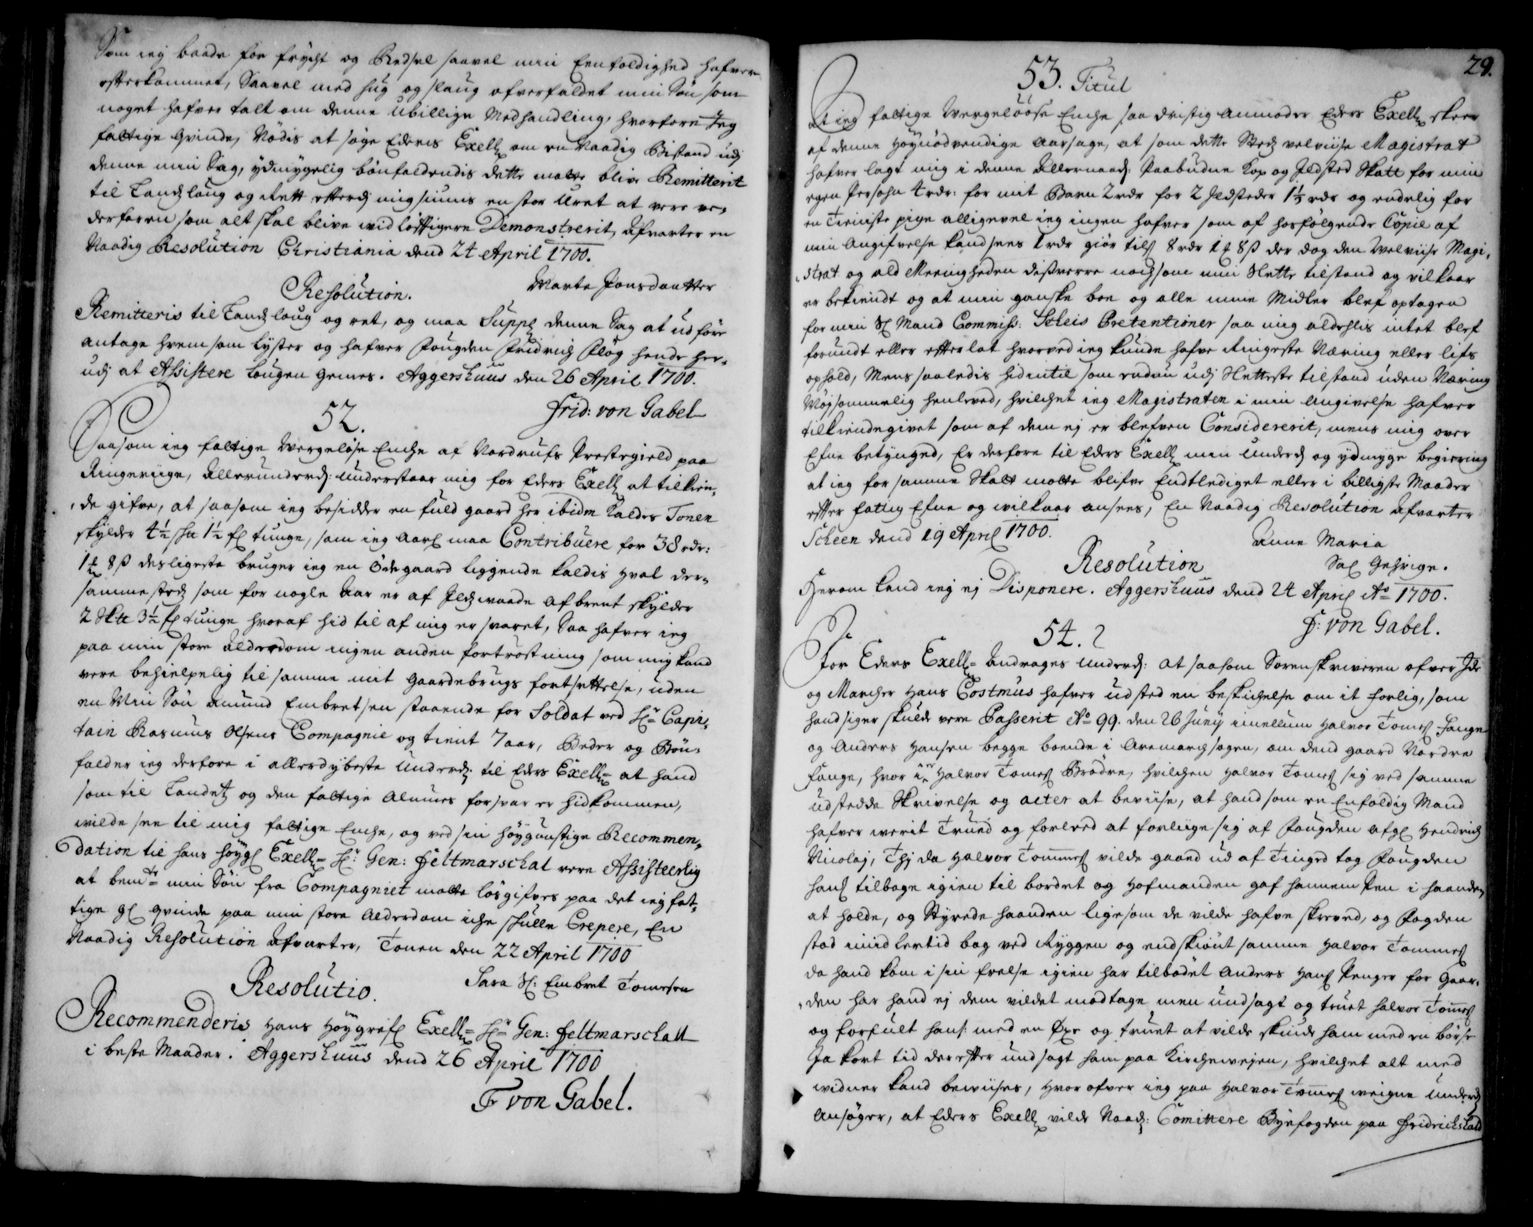 Som ieg baade for frycht og Redsel saavel min Eenfoldighed hafver
efterkommet, Saavel med hug og slaug ofverfaldet min Søn som
noget hafver talt om denne Ubillige Medhandling, hvorfore Jeg
fattige Qvinde, Nødis at søge Eders Excell om en Naadig Bistand udj
denne min Sag, ydmygelig bønfaldendis dette motte blive Remitterit
til Landlaug og Rett, efterdj mig siunis en stor Uret at vere ve,
derfaren som alt skal blive vidløftigere Demonstrerit, Afvarter en
Naadig Resolution Christiania dend 24 April 1700.
Marte Joensdaatter
Resolution.
Remitteris til Landlaug og ret, og maa Suppl denne Sag at udføre
antage hvem som Lyster og hafver Fougden Fridrich Pløg hende her,
udj at Assistere Lougen gemes. Aggershuus den 26 April 1700.
Frid: von Gabel
52.
Saasom ieg fattige Vergeløse Encke af Nordrufs Prestegield paa
Ringeriige, Allerunderd: Understaar mig for Eders Excell at tilkien,
de gifve, at saasom ieg besidder en fuld gaard her ibidm kaldes Tonen
skylder 4½ 1½ tunge, som ieg Aarl maa Contribuere for 38 rdr:
1 8 ß desligeste bruger ieg en Ödegaard liggende kaldis Hval der,
sammesteds som for nogle Aar er af Ildsvaade Afbrent skylder
2 3½ tunge hvoraf hid til af mig er svaret, Saa hafver ieg
paa min store Alderdom ingen anden fortrøstning som mig kand
vere behielpelig til samme mit gaardebrugs fortsettelse, uden
en Min Søn Amund Embretsen staaende for Soldat ved Hr Capi,
tain Rasmus Olsens Compagnie og tient 7 aar, Beder og Bøn,
falder ieg derfore i allerdybeste underd: til Eders Excell at hand
som til Landet og den fattige Almues forsvar er hidkommen,
wilde see til mig fattige Encke, og ved sin høygunstige Recommen,
dation til hans høygl Excell Hr: Gen: Feltmarschal vere Assisteerlig
at bemte min Søn fra Compagniet motte løsgifves paa det ieg fat,
tige gl qvinde paa min store Alderdom icke skulle Crepere, En
Naadig Resolution Afvarter, Tonen den 22 April 1700
Sara Sl: Embret Tomesen
Resolutio.
Recommenderis Hans Høygrefl Excell Hr Gen: Feltmarschall
i beste Maader. Aggershuus dend 26 April 1700
F von Gabel.
29.
53. Titul
At ieg fattige Vergeløøse Encke saa dristig Anmoder Eders Excell skeer
af denne høynødvendige Aarsage, at som dette Steds velviise Magistrat
hafver lagt mig i denne Allernaad: Paabudne Kop og Ildsted Skatt for min
egen Persohn 4 rdr: for mit Barn 2 rdr for 2 Ildsteder 1½ rdr og endelig for
en Tieniste pige alligevel ieg ingen hafver som af hosfølgende Copie af
min Angifvelse kand sees 1 rdr giør tils 8 rdr 8 ß der dog den Velviise Magi,
strat og ald Meenigheden disverre nochsom min Slette tilstand og vilkaar
er bekiendt og at min gandske boe og alle mine Midler blef optagen
for min Sl Mand Commiss: Scheis Prætentioner saa mig aldelis intet blef
forundt eller efterlat hvorved ieg kunde hafve Ringeste Næring eller lifs
ophold, Mens saaledis hidintil som endnu udj Slætteste tilstand uden Næring
Møysommelig henleved, hvilchet ieg Magistraten i min Angivelse hafver
tilkiendegivet som af dem ej er blefven Considererit, mens mig over
Efne betynged, Er derfore til Eders Excell min underd og ydmyge begiering
at ieg for samme Skatt motte blifve Endtlediget eller i billigste Maader
efter fattig Efne og vilkaar ansees, En Naadig Resolution Afvarter
Scheen dend 19 April 1700.
Anne Maria
Sal Gehrige.
Resolution
Herom kand ieg ej Disponere. Aggershuus dend 24 April Ao 1700.
F: von Gabel.
54.
For Eders Excell Andrages underd: at saasom Sorenskriveren ofver Ide
og Marcher Hans Costmus hafver udsted en beskichelse om it forlig, som
hand siger skulde vere Passerit Ao 99. den 26 Junij imellum Halvor Tomes Fange
og Anders Hansen begge boende i Aremarchsogen, om dend gaard Nordre
Fange, hvor Halvor Tomes Brødre, hvilchen Halvor Tomes sig ved samme
udstedde Skrivelse og acter at beviise, at hand som en Enfoldig Mand
hafver werit Trued og forleed at forliige sig af Fougden afgl Hendrich
Nicolaj, Thj da Halvor Tommes vilde gaaed ud af Tinged tog Fougden
hans tilbage igien til bordet og Hofmanden gaf hannem Pen i haanden
at holde, og Styrede haanden ligesom de vilde hafve skreved, og Fogden
stod imidlertid bag ved Ryggen og endskiønt samme Halvor Tommes
da hand kom i sin frelse igien har tilbødet Anders Hans Penger for Gaar,
den har hand ej dem vildet modtage men undsagt og truet Halvor Tomes
og forfult hans med en Øxe og truet at vilde skiude ham med en børse
Ja kort tid derefter undsagt ham paa Kircheveyen, hvilchet alt med
vidner kand beviises, Hvorofver ieg paa Halvor Tomes weigne underd
Ansøger, at Eders Excell vilde Naad: Comittere Byefogden paa Fridrichshald